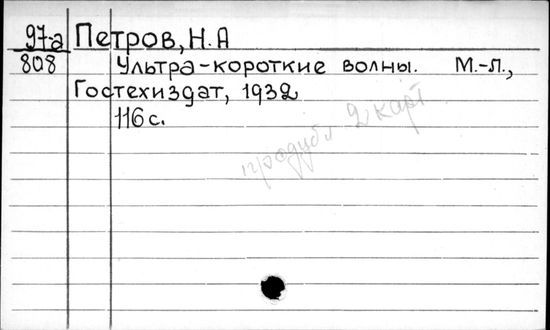 97-а Петров, Н.А
808 Ультра-короткие волны. М.-Л.,
Гостехиздат, 1932
116 с.
продубл 2 карт